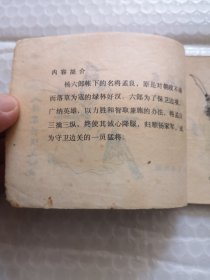 内容简介
杨六郎帐下的名将孟良，原是对朝政不满
而落草为寇的绿林好汉，六郎为了保卫边境，
广纳英雄，以力胜和智取兼施的办法，将孟良
三擒三纵，终使其诚心降服，归顺杨家军，成
为守卫边关的一员猛将。